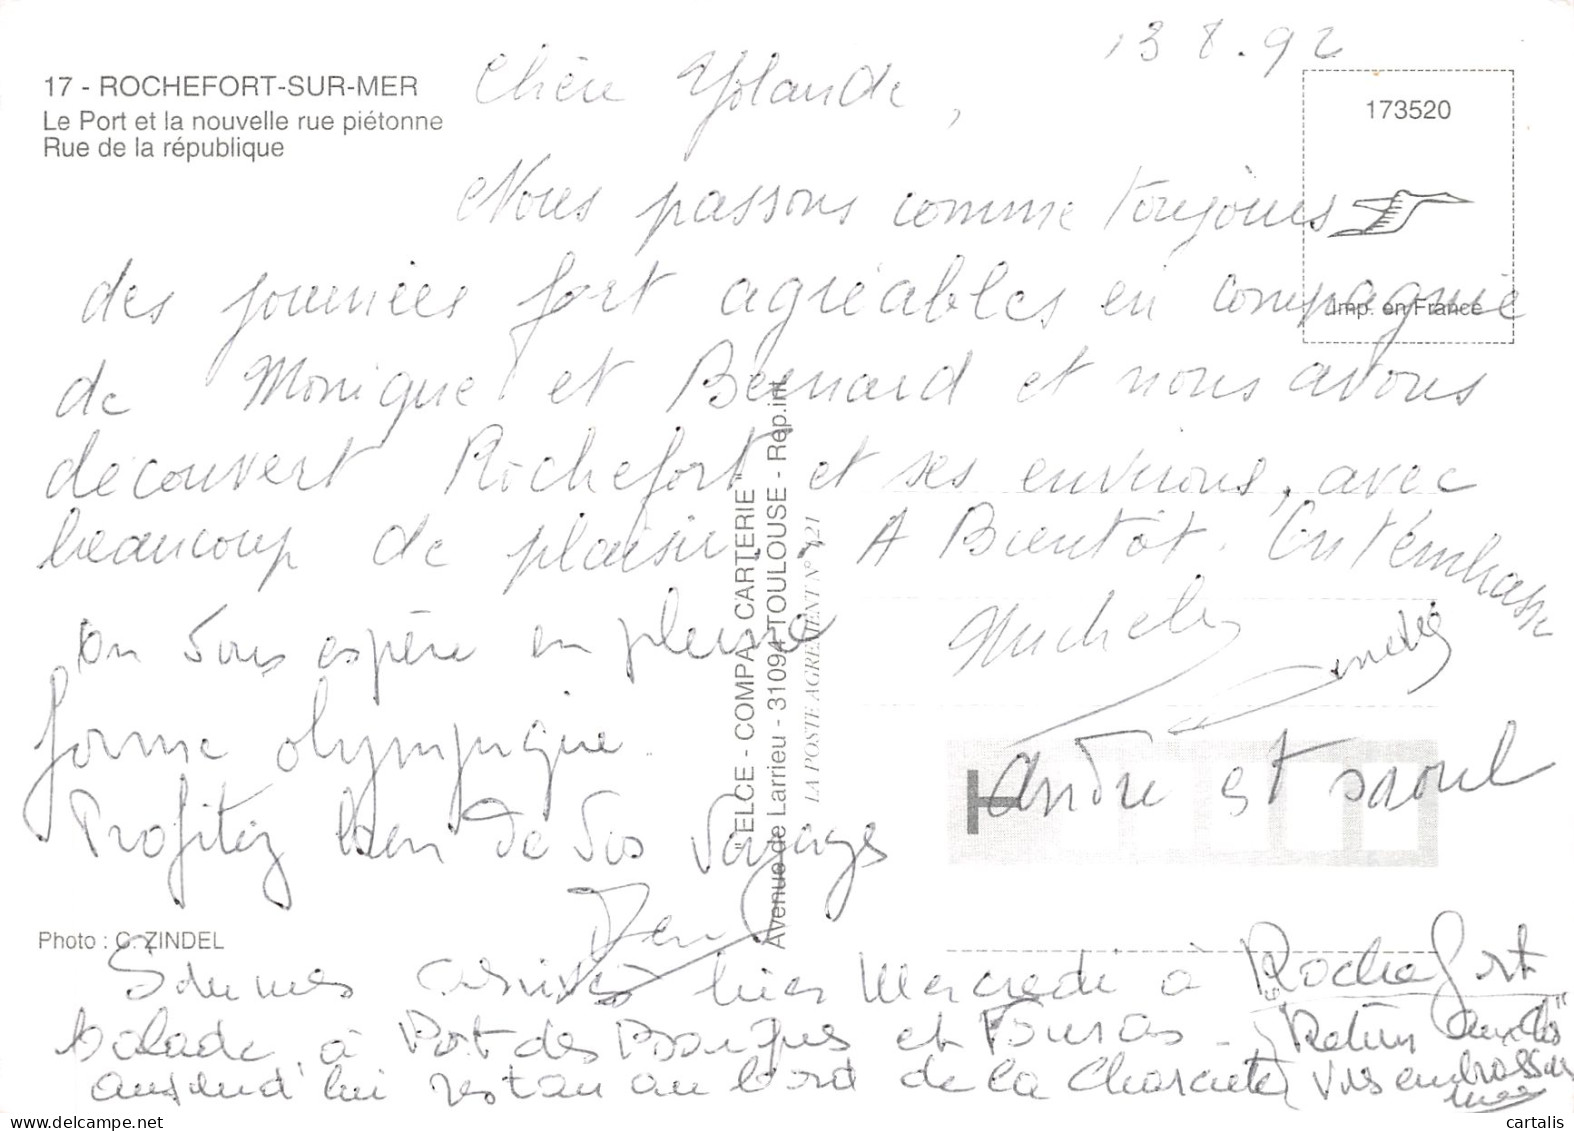 13 8. 92
17 - ROCHEFORT-SUR-MER
Le Port et la nouvelle rue piétonne
Rue de la république
173520
Imp. en France
Chère Yolande,
Nous passons comme toujours
des journées fort agréables en compagnie
de Monique et Bernard et nous avons
découvert Rochefort et ses environs, avec
beaucoup de plaisir. A Bientôt. On t'embrasse
Michele
on vous espère en pleine
forme olympique.
Profitez bien de vos voyages
André et
"ELCE - COMPA CARTERIE"
Avenue de Larrieu - 31094 TOULOUSE - Rep.int.
LA POSTE AGREMENT N° 421
Photo : C. ZINDEL
Sommes arrivés hier Mercredi à Rochefort
balade à Port des Barques et Fouras -
aujourd'hui restau au bord de la Charente
www.delcampe.net
cartalis